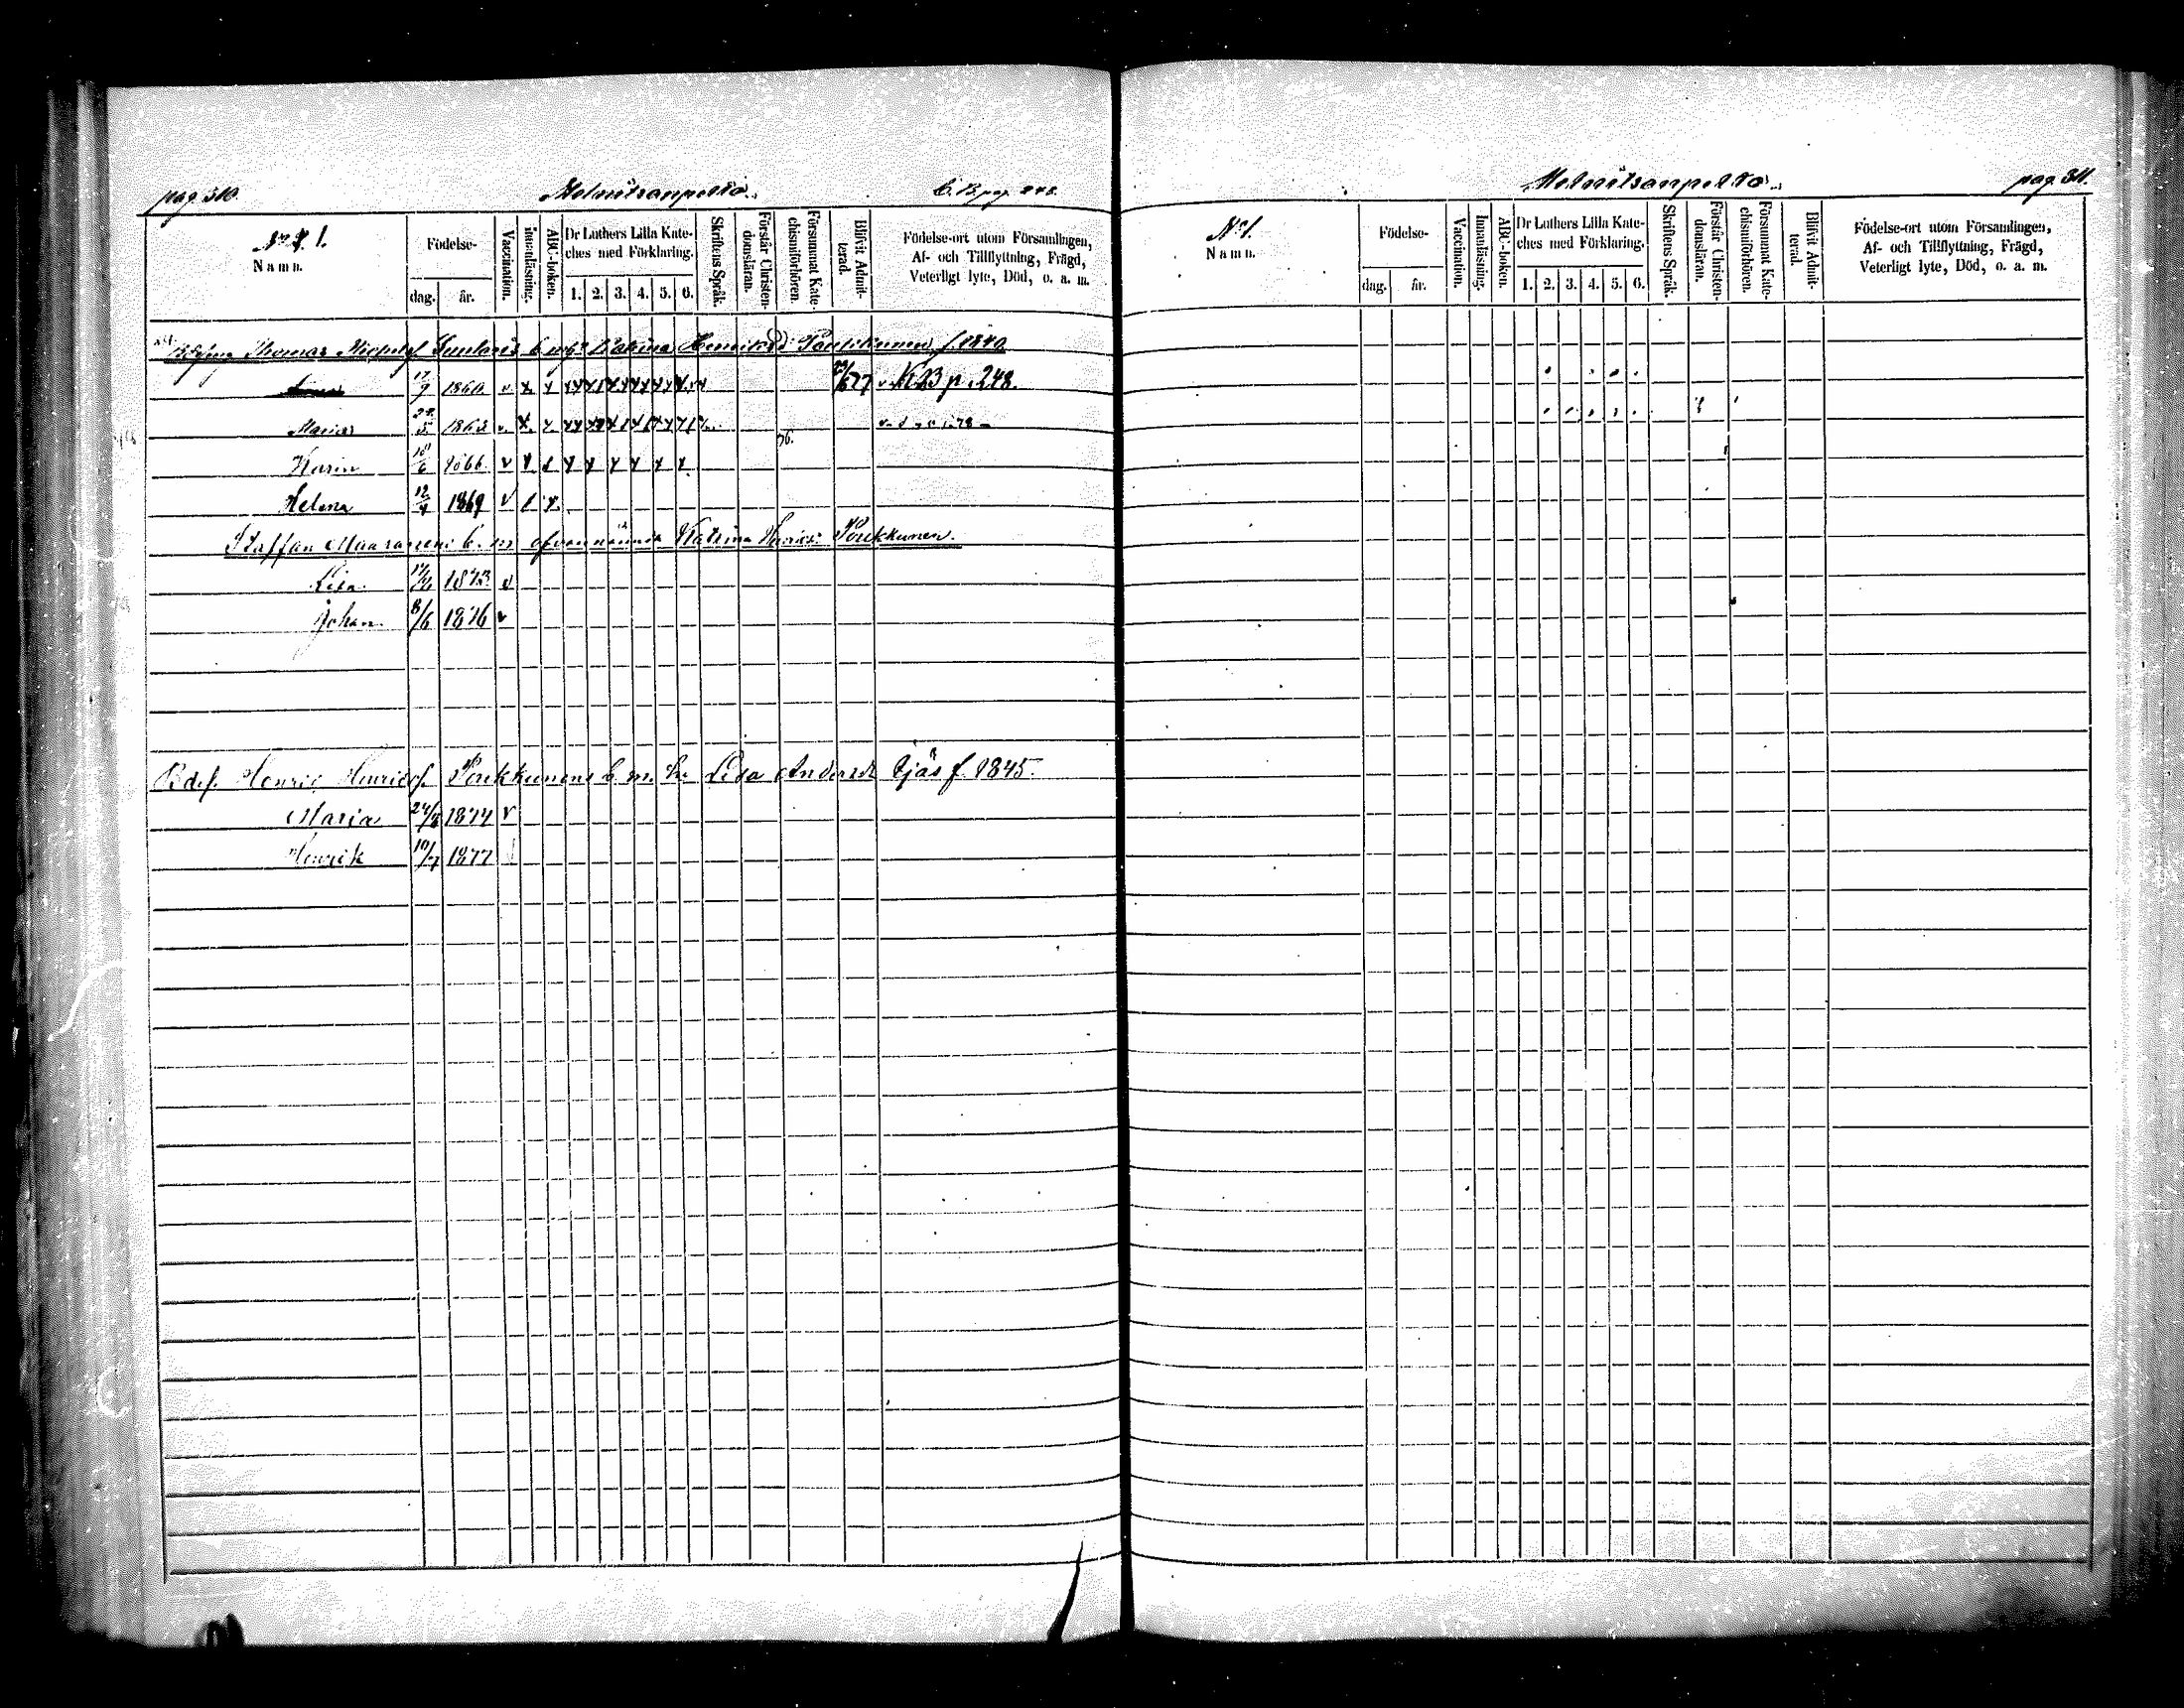 pag. 310.
Melnitsanpelto.
C. B. pag. 248.
No 1.
Namn.
Födelse-
dag. år.
Vaccination.
Innanläsning.
ABC-boken.
Dr Luthers Lilla Kate-
ches med Förklaring.
1. 2. 3. 4. 5. 6.
Skriftens Språk.
Förstår Christen-
domsläran.
Försummat Kate-
chismiförhören.
Blifvit Admit-
terad.
Födelse-ort utom Församlingen,
Af- och Tillflyttning, Frägd,
Veterligt lyte, Död, o. a. m.
Thomas Michelsf b. Henriksd: f. 1840
17/9 1860. v 77 K B p. 248.
Maria 5 1863 v.
76.
Karin 18/6 1866 v
Helena 12/4 1869 v
Staffan b. m. Katrina Henrics: Poukkunen.
Lisa 1873 v
Johan. 8/6 1876 v
Bdef. Henric Henricsf. Poukkunens b. m. h. Lisa Andersdr Äjäs f. 1845.
Maria 24/8 1874 v
Henrik 10/7 1877
Melnitsanpelto.
pag. 311.
No 1.
Namn.
Födelse-
dag. år.
Vaccination.
Innanläsning.
ABC-boken.
Dr Luthers Lilla Kate-
ches med Förklaring.
1. 2. 3. 4. 5. 6.
Skriftens Språk.
Förstår Christen-
domsläran.
Försummat Kate-
chismiförhören.
Blifvit Admit-
terad.
Födelse-ort utom Församlingen,
Af- och Tillflyttning, Frägd,
Veterligt lyte, Död, o. a. m.